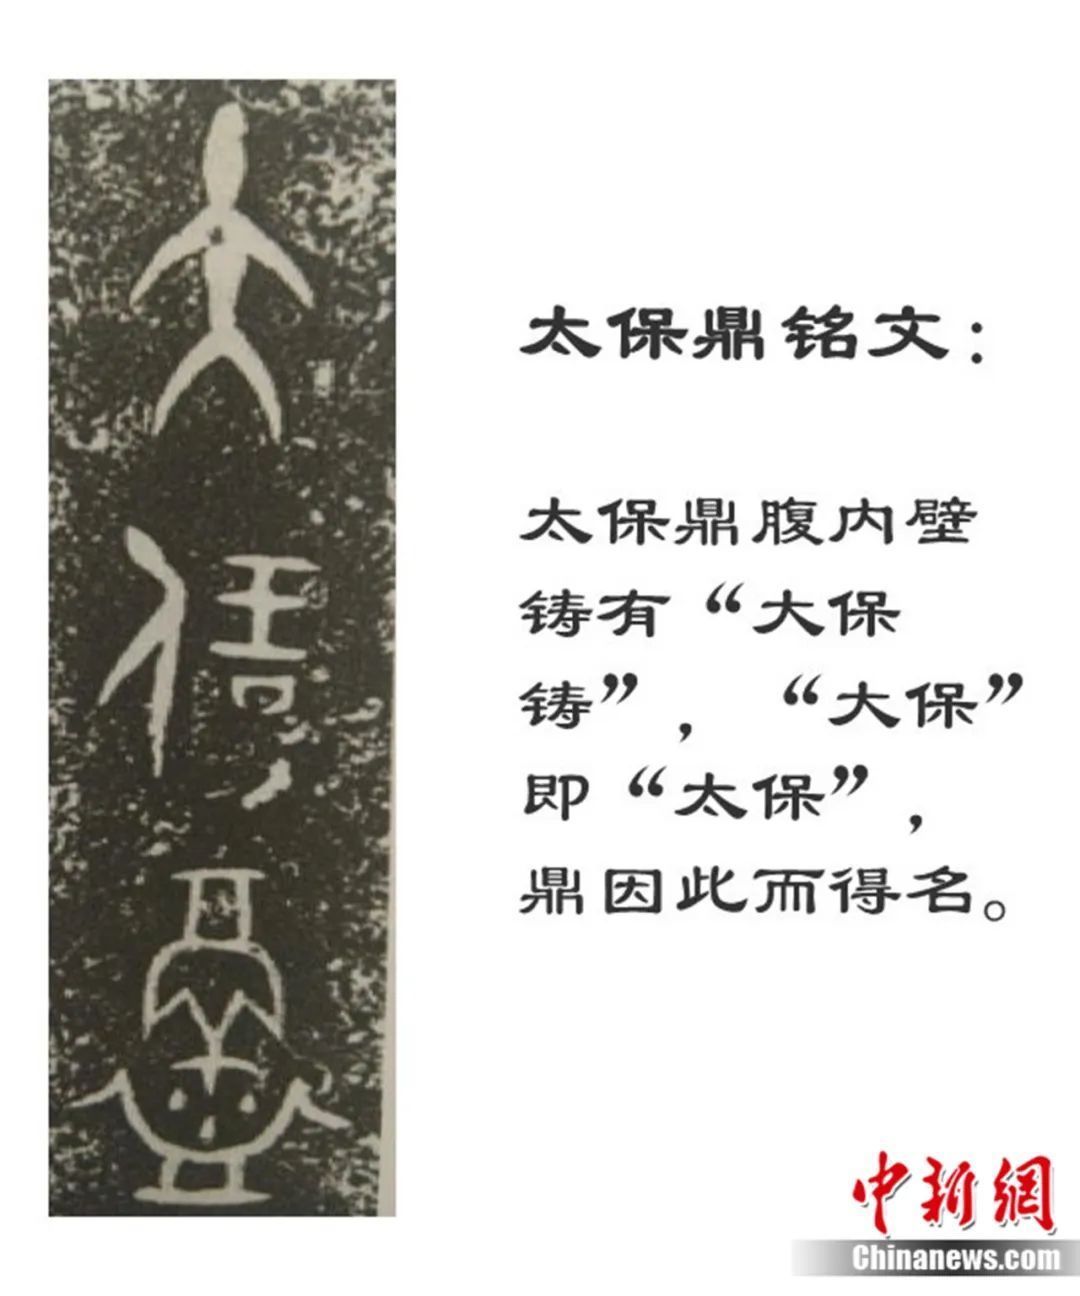 大
保
鑄
太保鼎铭文：
太保鼎腹内壁
铸有“大保
铸”，“大保”
即“太保”，
鼎因此而得名。
中新網
Chinanews.com